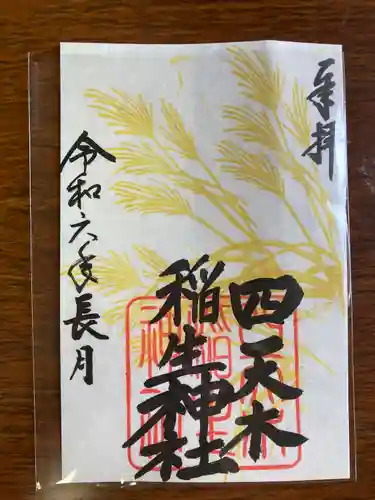 奉拝
四天木
稲生神社
令和六年長月